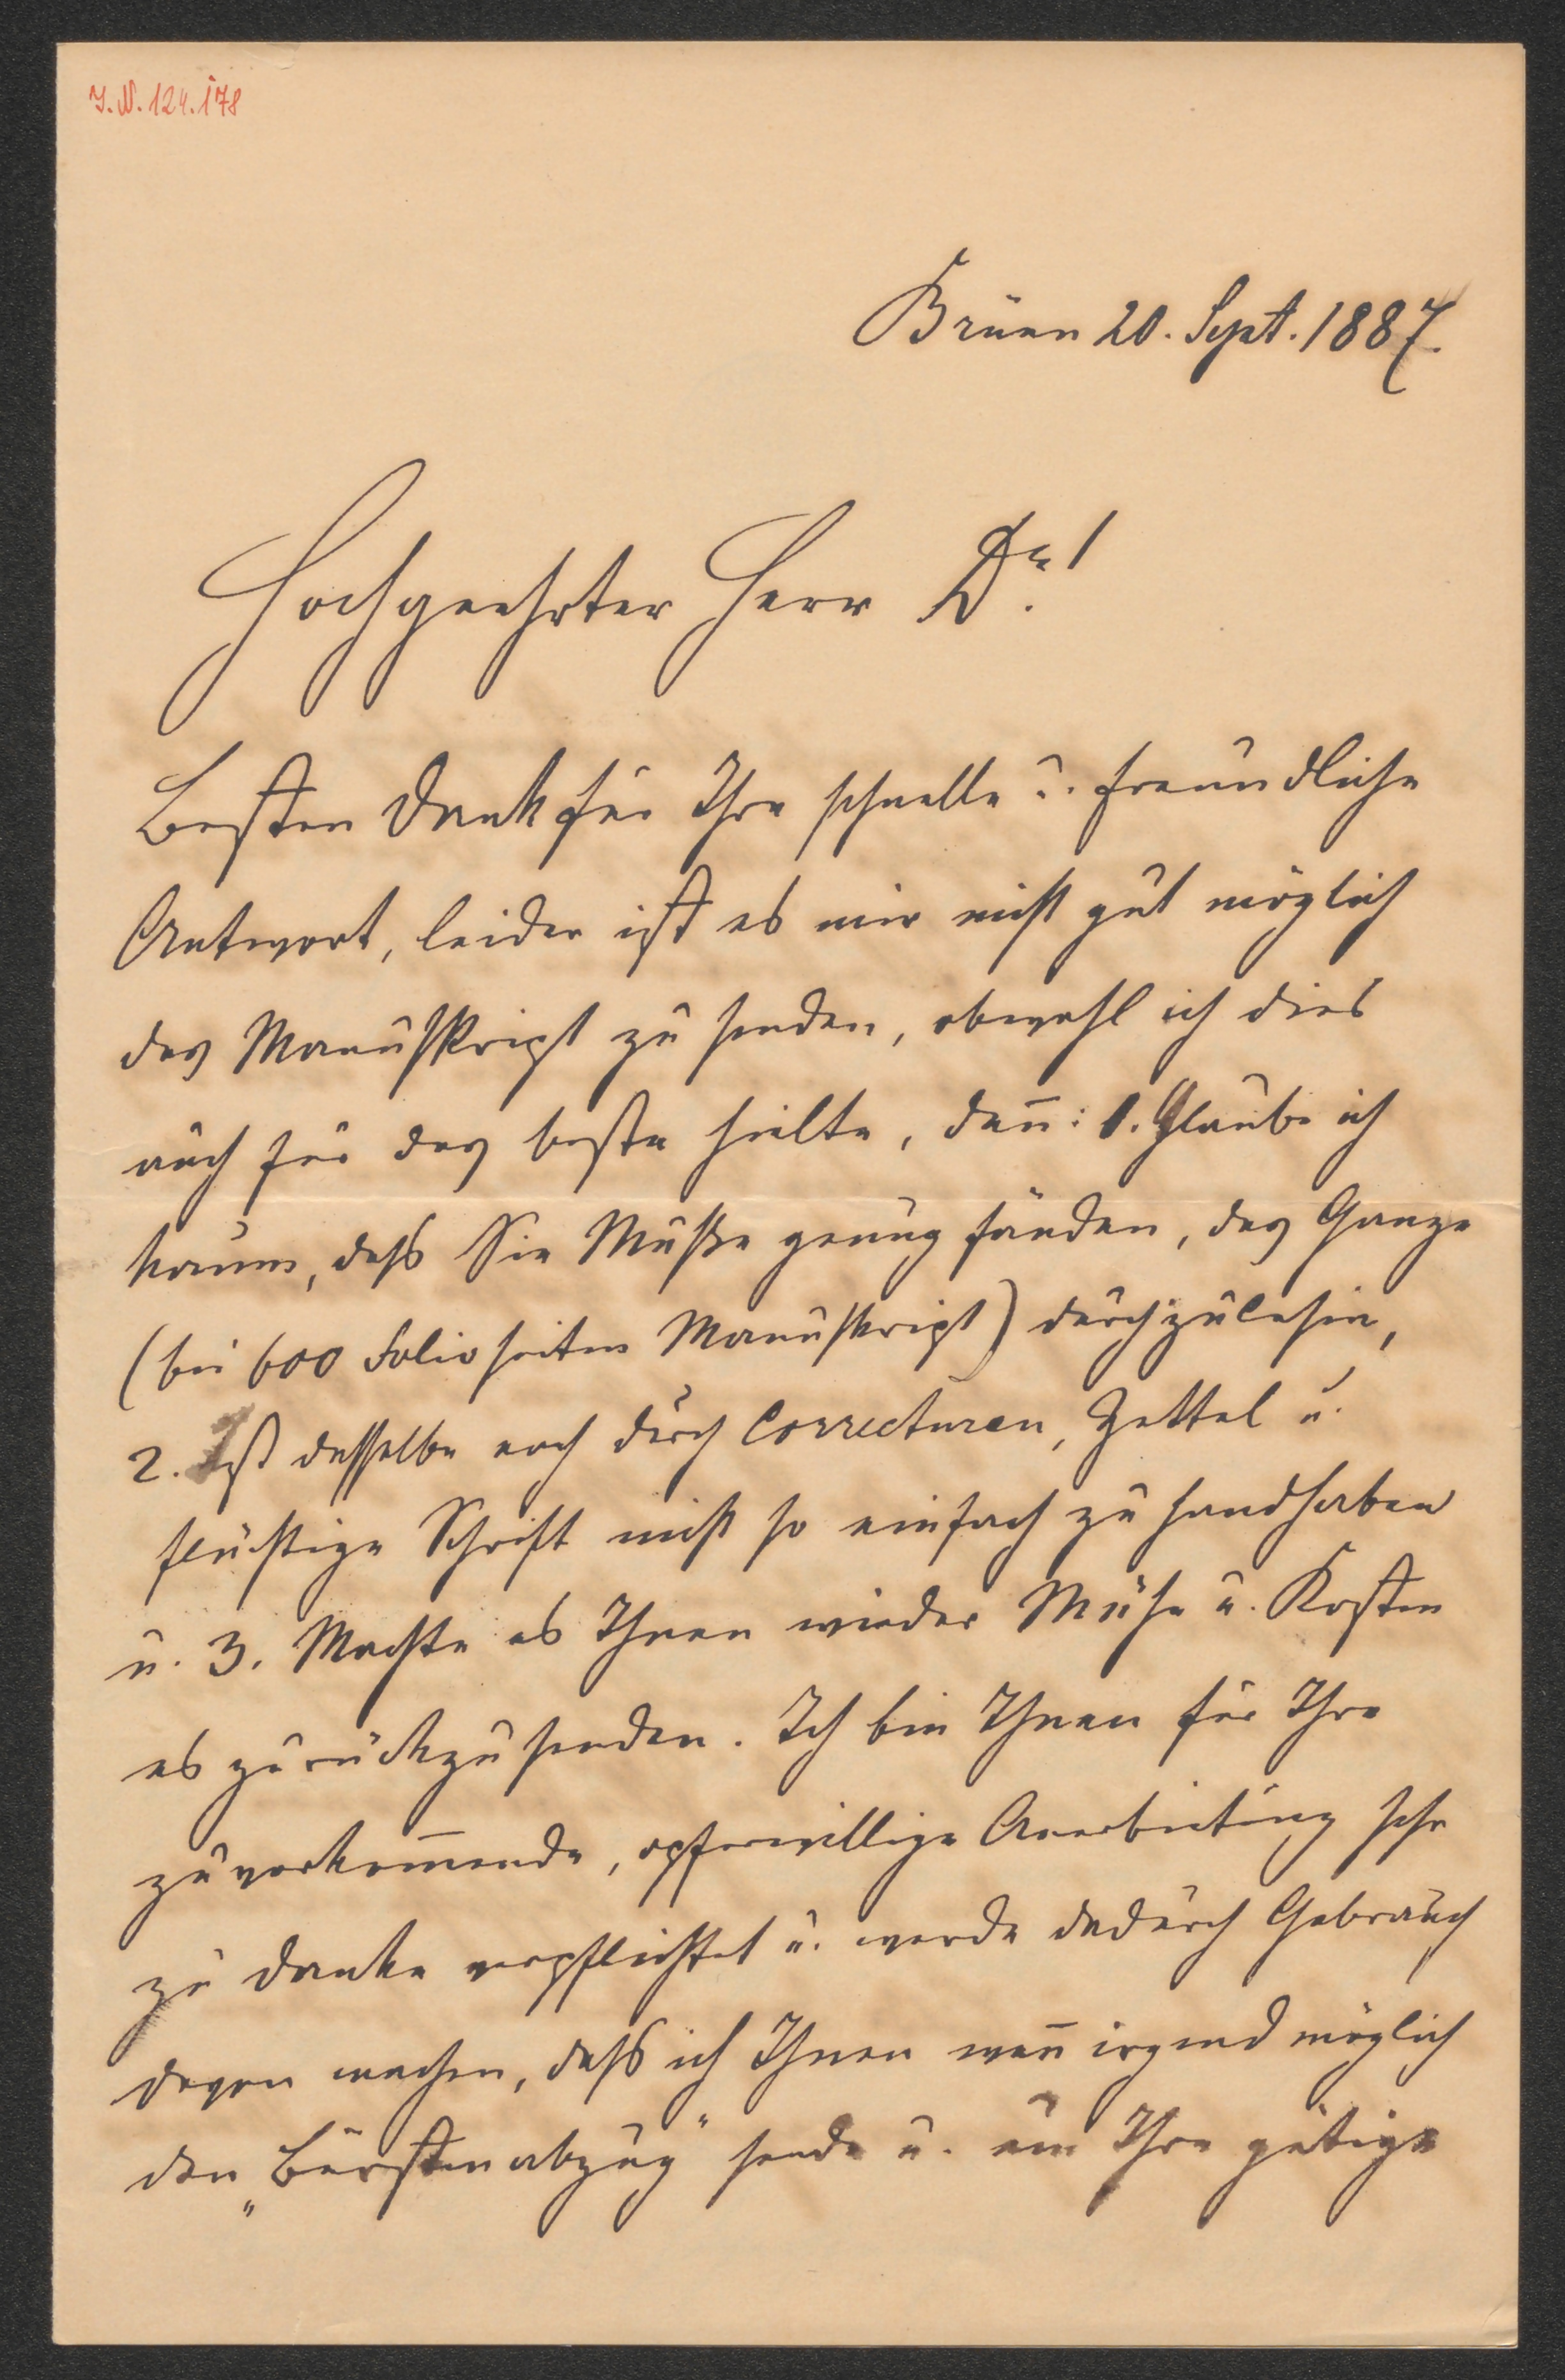 I.N. 124.178
Brünn 20. Sept. 1887.
Hochgeehrter Herr Dr.!
Besten Dank für Ihre schnelle u. freundliche
Antwort, leider ist es mir nicht gut möglich
das Manuskript zu senden, obwohl ich dies
auch für das beste hielte, den̄: 1. Glaube ich
kaum, dass Sie Muße genug fänden, das Ganze
(bei 600 Folioseiten Manuskript) durchzulesen,
2. Ist dasselbe noch durch Correcturen, Zettel u.
flüchtige Schrift nicht so einfach zu handhaben
u. 3. Machte es Ihnen wieder Mühe u. Kosten
es zurückzusenden. Ich bin Ihnen für Ihre
zuvorkom̄ende, opferwillige Anerbietung sehr
zu Danke verpflichtet u. werde dadurch Gebrauch
davon machen, dass ich Ihnen wen̄ irgend möglich
den „Bürstenabzug" sende u. um Ihre gütige